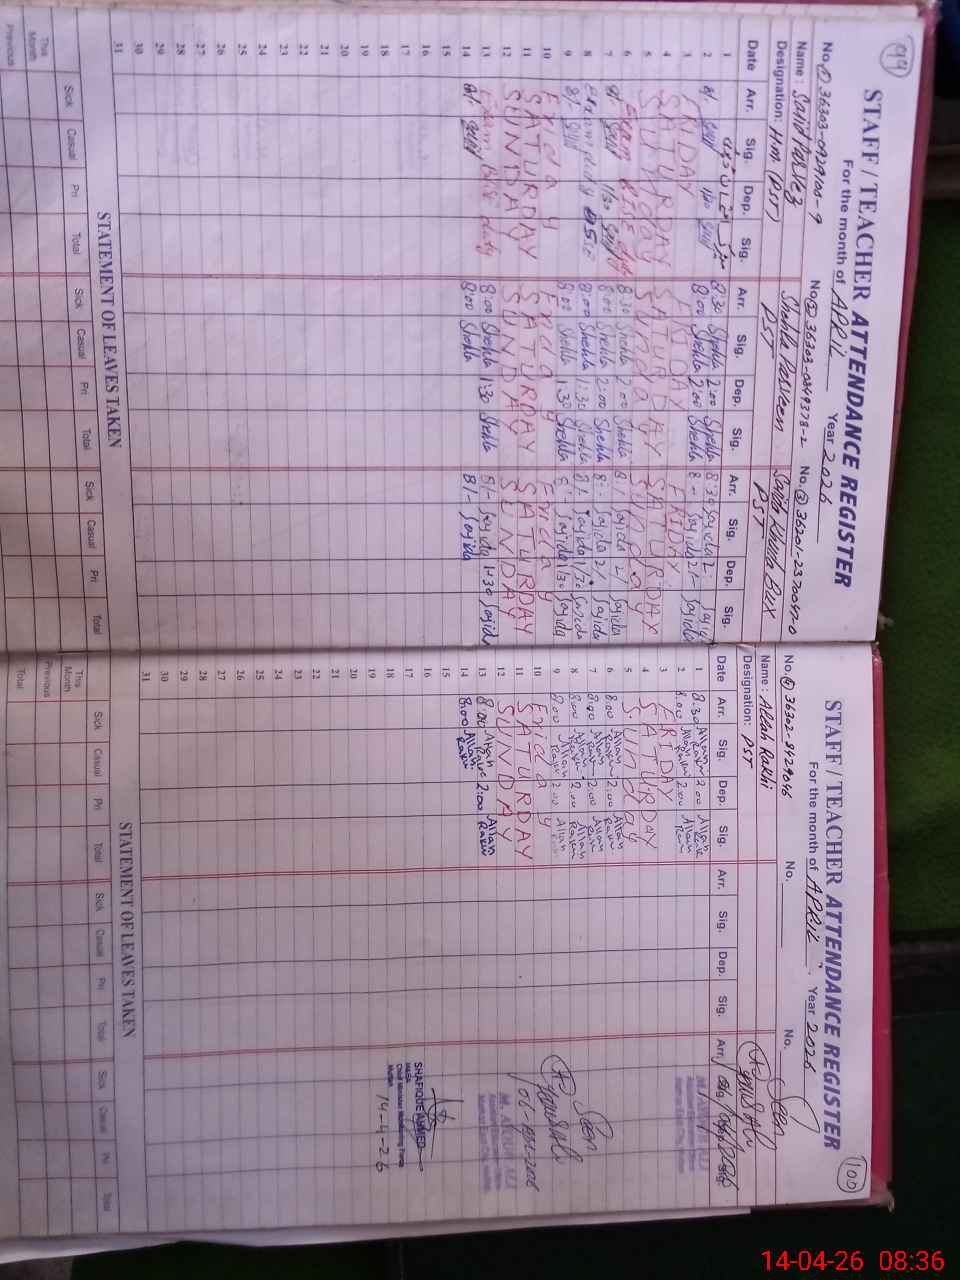 99
STAFF / TEACHER ATTENDANCE REGISTER
For the month of APRIL Year 2026
No. ① 36303-0929100-9 No ② 36303-0349378-2 No. ③ 36201-2370042-0
Name: Sajid Parvez Shahla Parveen Sajida Khuda Bux
Designation: H.M. (PST) PST PST
Date Arr. Sig. Dep. Sig. Arr. Sig. Dep. Sig. Arr. Sig. Dep. Sig.
1 8:30 Shehla 2:00 Shehla 8:30 Sajida 2:
2 8:00 Shehla 2:00 Shehla 8 Sajida 2/- Sajida
3 FRIDAY FRIDAY FRIDAY
4 SATURDAY SATURDAY SATURDAY
5 Sunday Sunday Sunday
6 8:30 Shehla 2:00 Shehla 8/ Sajida 2/ Sajida
7 1:30 8:00 Shehla 2:00 Shehla 8: Sajida 2/ Sajida
8 8:00 Shehla 1:30 Shehla 8/ Sajida 1/30 Sajida
9 8/ 8:00 Shehla 1:30 Shehla 8: Sajida 1:30 Sajida
10 Friday Friday Friday
11 SATURDAY SATURDAY SATURDAY
12 SUNDAY SUNDAY SUNDAY
13 Exam duty 8:00 Shehla 1:30 Shehla 8/- Sajida 1:30 Sajida
14 8/. 8:00 Shehla 8/- Sajida
15
16
17
18
19
20
21
22
23
24
25
26
27
28
29
30
31
STATEMENT OF LEAVES TAKEN
Sick Casual Pri Total Sick Casual Pri Total Sick Casual Pri Total
This Month
Previous
100
STAFF / TEACHER ATTENDANCE REGISTER
For the month of APRIL Year 2026
No. ④ 36302-8429046 No. No.
Name: Allah Rakhi
Designation: PST
Seen
Date Arr. Sig. Dep. Sig. Arr. Sig. Dep. Sig. Arr. Sig.
1 8:30 Allah Rakhi 2:00 Allah Rakhi
2 8:00 Allah Rakhi 2:00 Allah Rakhi
3 FRIDAY
4 SATURDAY
5 Sunday
6 8:00 Allah Rakhi 2:00 Allah Rakhi
7 8:00 Allah Rakhi 2:00 Allah Rakhi
8 8:00 Allah Rakhi 2:00 Allah Rakhi
9 8:00 Allah Rakhi 2:00 Allah
10 Friday
11 SATURDAY
12 SUNDAY
13 8:00 Allah Rakhi 2:00 Allah Rakhi
14 8:00 Allah Rakhi
15
16
17
18
19
20
21
22
23
24
25
26
27
28
29
30
31
Seen
SHAFIQUE AHMED
Chief Minister Monitoring Force
Multan
14-4-26
STATEMENT OF LEAVES TAKEN
Sick Casual Pri Total Sick Casual Pri Total Sick Casual Pri Total
This Month
Previous
Total
14-04-26 08:36